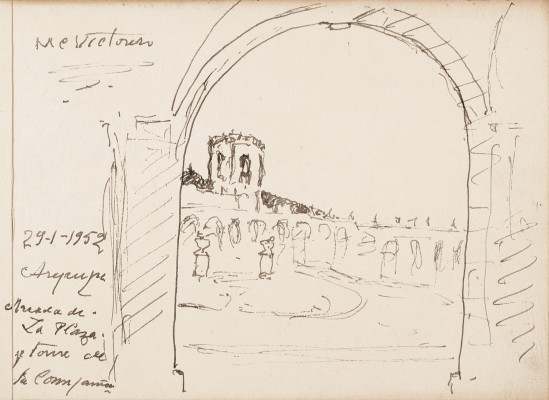 Mc Victorin
29-1-1952
Arequipa
Arcada de
La Plaza.
y torre de
la Compañia